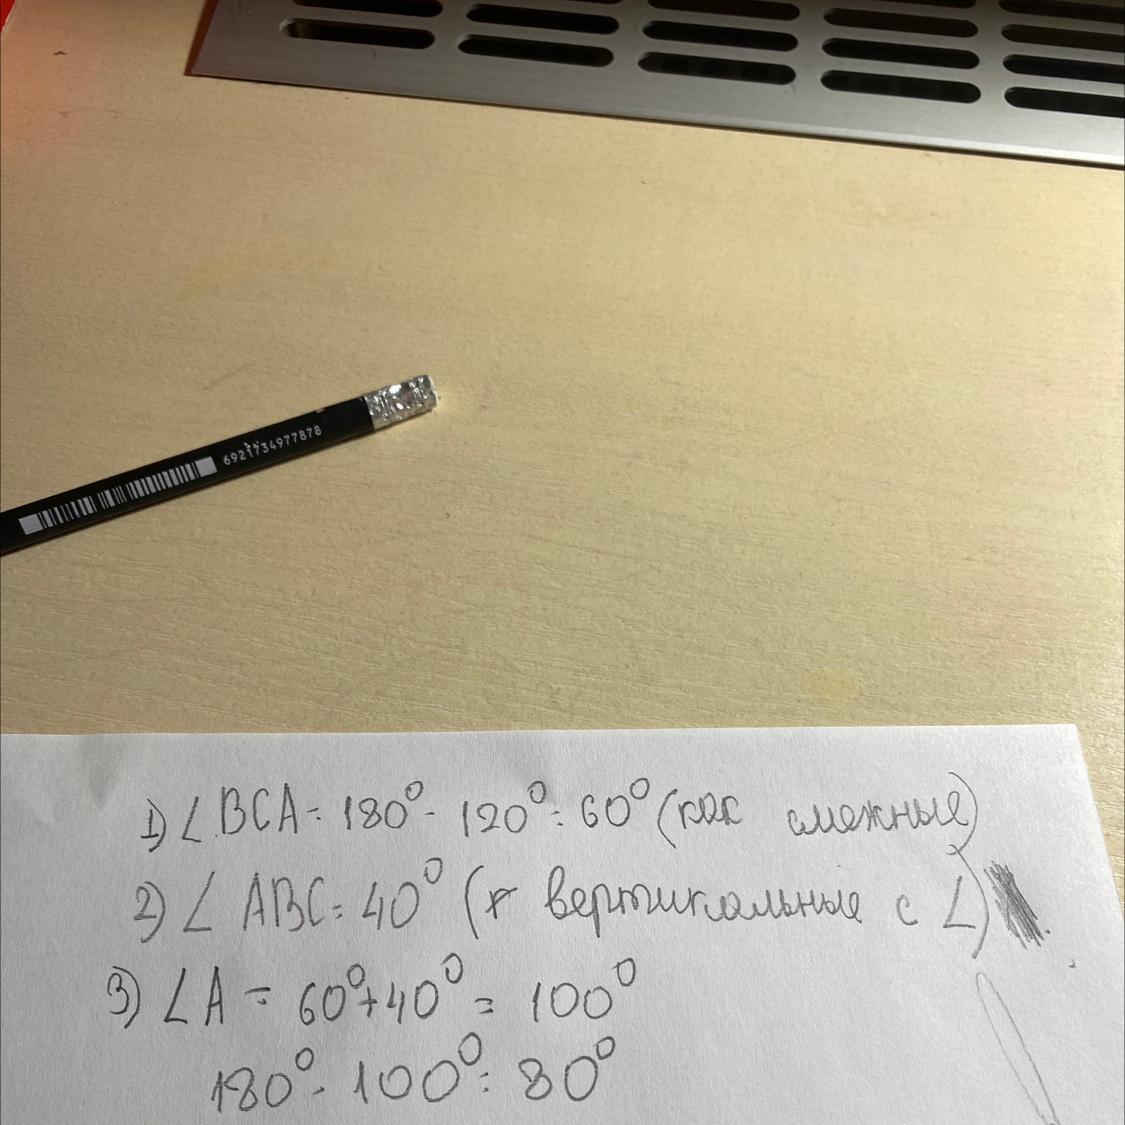 6921734977878
1) ∠BCA = 180° - 120° = 60° (как смежные)
2) ∠ ABC = 40° ( вертикальные с ∠)
3) ∠A = 60°+40° = 100°
180° - 100° = 80°